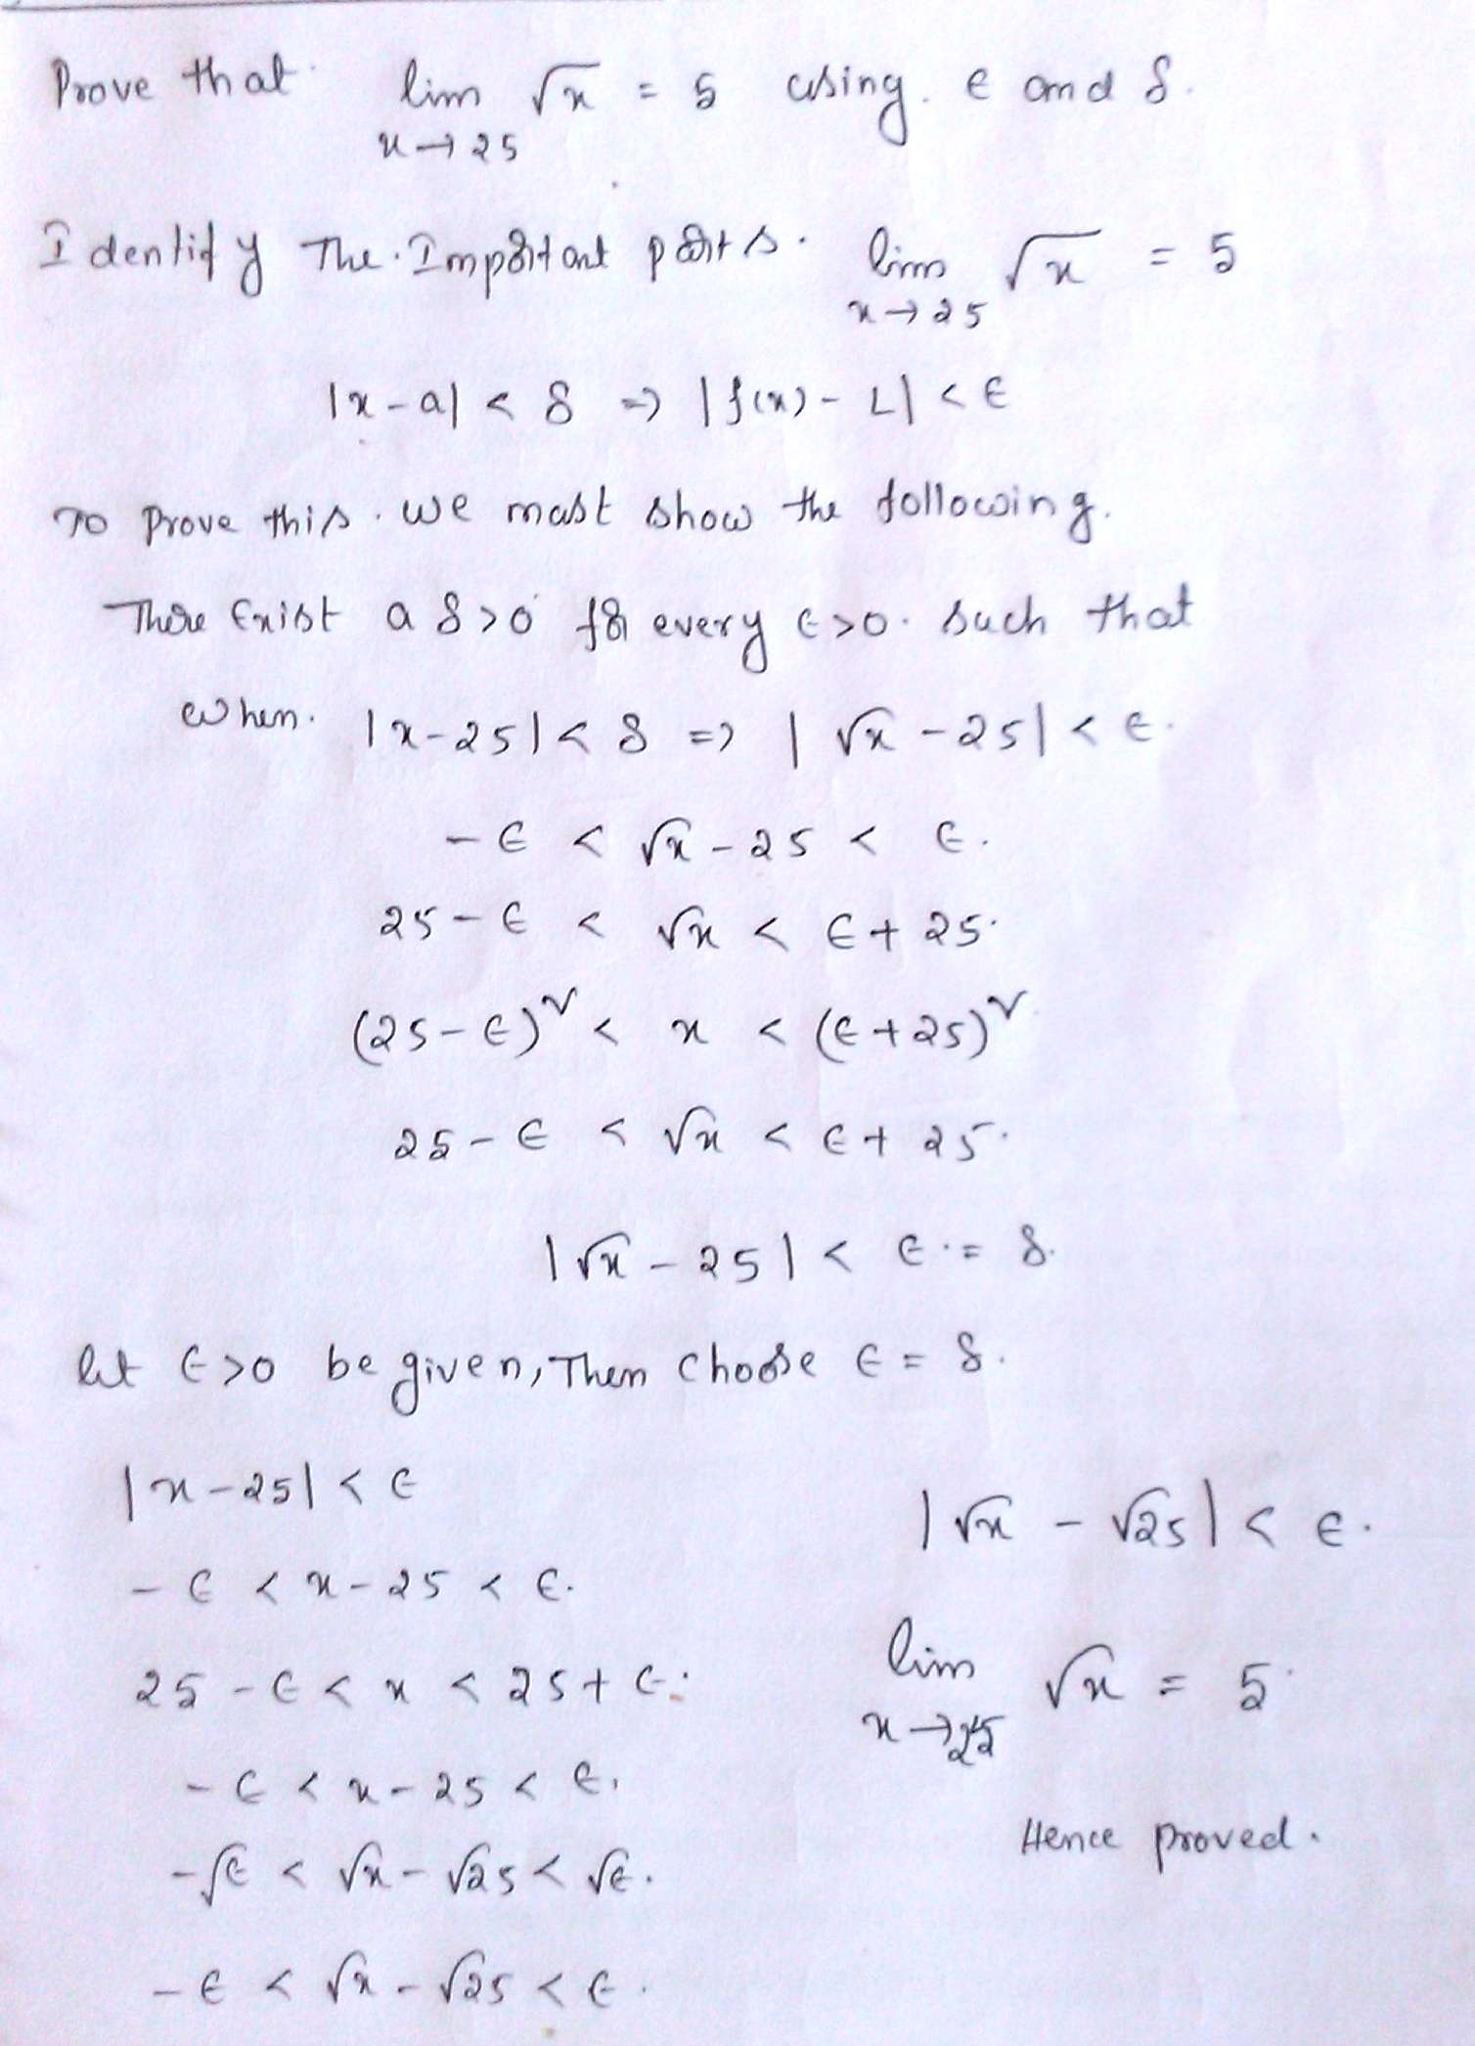 Prove that lim √x = 5 using ϵ and δ.
x→25
Identify The Important parts. lim √x = 5
x→25
|x-a| < δ ⇒ |f(x) - L| < ϵ
To prove this. we mast show the following.
There Exist a δ>0 for every ϵ>0. such that
when. |x-25| < δ ⇒ |√x - 25| < ϵ.
-ϵ < √x - 25 < ϵ.
25-ϵ < √x < ϵ+25.
(25-ϵ)² < x < (ϵ+25)²
25-ϵ < √x < ϵ+25.
|√x - 25| < ϵ = δ.
let ϵ>0 be given, Then choose ϵ = δ.
|x-25| < ϵ
-ϵ < x-25 < ϵ.
25-ϵ < x < 25+ϵ.
-ϵ < x-25 < ϵ.
-√ϵ < √x - √25 < √ϵ.
-ϵ < √x - √25 < ϵ.
|√x - √25| < ϵ.
lim √x = 5
x→25
Hence proved.